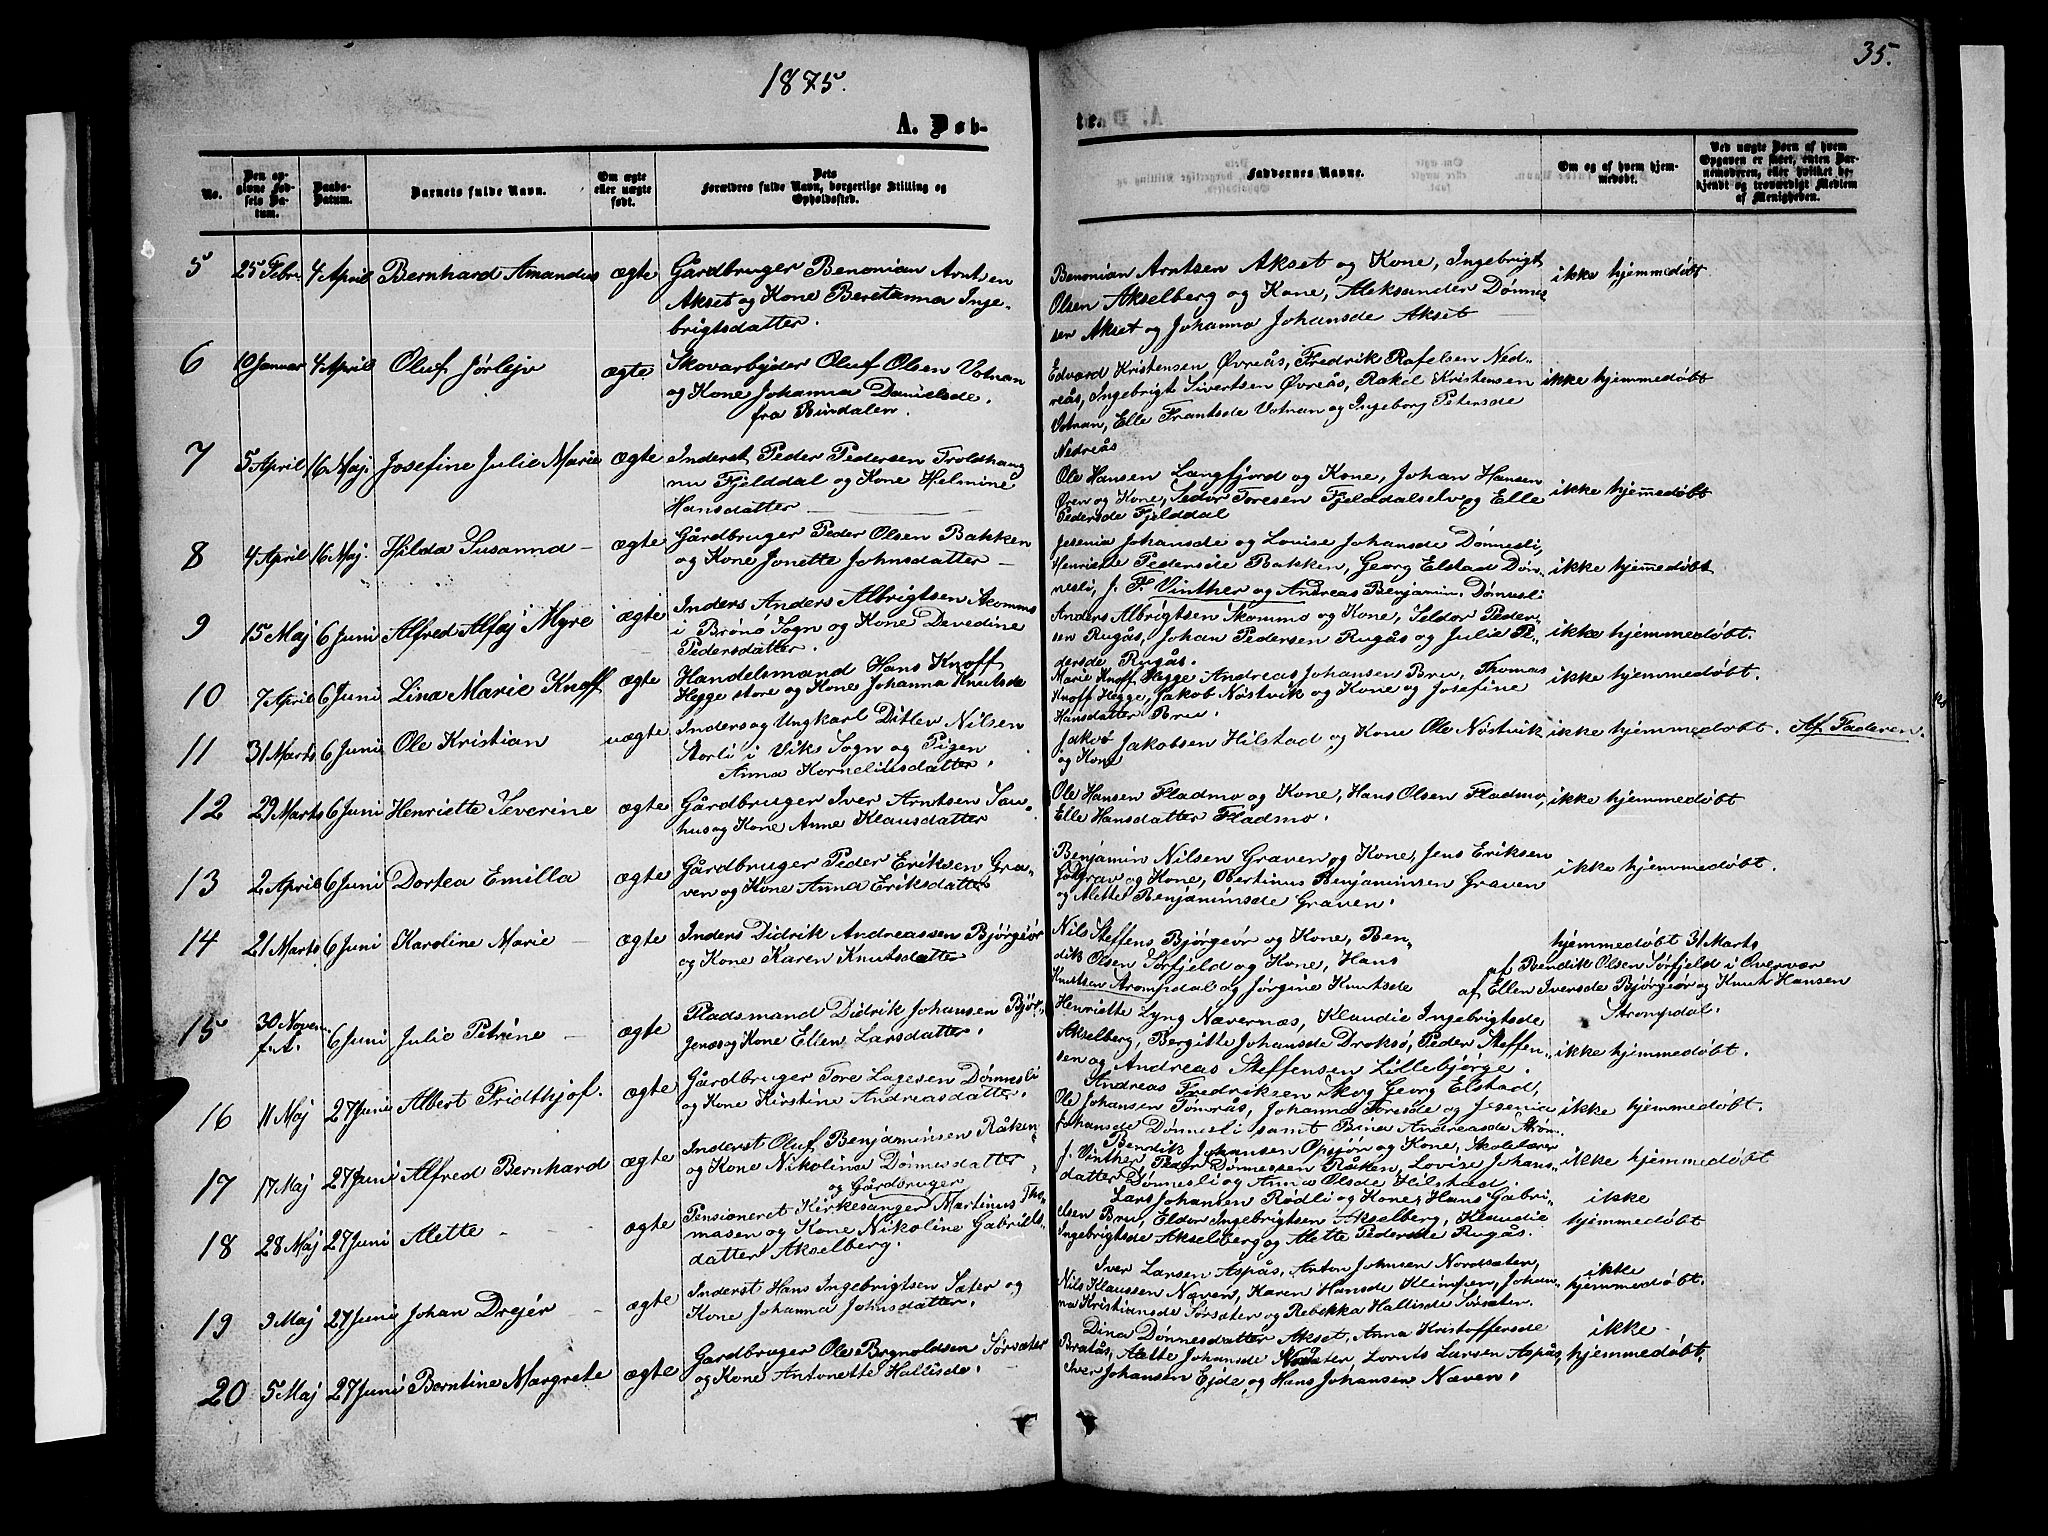 1875.
35.
A. Døb-
te.
No.
Den op-
givne Fød-
sels Da-
tum.
Daabs-
Datum.
Barnets fulde Navn.
Om ægte
eller uægte
født.
Dets
Forældres fulde Navn, borgerlige Stilling og
Opholdssted.
Faddernes Navne.
Om og af hvem hjem-
medøbt.
Ved uægte Børn af hvem
Opgaven er skeet, enten Bar-
nemoderen, eller hvilket be-
kjendt og troværdigt Medlem
af Menigheden.
5 25 Febr. 4 April Bernhard Amandus ægte Gårdbruger Benonian Arntsen
Akset og Kone Beretanna Inge-
brigtsdatter.
Benonian Arntsen Akset og Kone, Ingebrigt
Olsen Akselberg og Kone, Aleksander Dønnes-
sen Akset og Johanna Johansde Akset
ikke hjemmedøbt
6 10 Januar 4 April Oluf Jørlejv ægte Skovarbejder Oluf Olsen Votnan
og Kone Johanna Danielsde.
fra Bindalen.
Edvard Kristensen Øvreås, Fredrik Rafelsen Ned-
reås, Ingebrigt Sivertsen Øvreås, Rakel Kristensen
Votnan, Elle Frantsde Votnan og Ingeborg Petersde
Nedreås
ikke hjemmedøbt
7 5 April 16 Maj. Josefine Julie Marie ægte Inderst Peder Pedersen Troldhaug
nu Fjelddal og Kone Helmine
Hansdatter
Ole Hansen Langfjord og Kone, Johan Hansen
Øren og Kone, Sedor Toresen Fjelddalselv og Elle
Pedersde Fjelddal
ikke hjemmedøbt
8 4 April 16 Maj. Hilda Susanna ægte Gårdbruger Peder Olsen Bakken
og Kone Jonette Johnsdatter
Jesenia Johansde og Lovise Johansde Dønnesli,
Henriette Pedersde Bakken, Georg Elstad Døn-
nesli, J. F. Vinther og Andreas Benjamin. Dønnesli
ikke hjemmedøbt
9 15 Maj 6 Juni Alfred Alføj Myre ægte Inders Anders Albrigtsen Skommo
i Brønø Sogn og Kone Devedine
Pedersdatter.
Anders Albrigtsen Skommo og Kone, Seldor Peder-
sen Rugås, Johan Pedersen Rugås og Julie Pe-
dersde Rugås.
ikke hjemmedøbt.
10 7 April 6 Juni Lina Marie Knoff ægte Handelsmand Hans Knoff
Hegge store og Kone Johanna Knutsde
Marie Knoff Hegge, Andreas Johansen Bru, Thomas
Knoff Hegge, Jakob Nøstvik og Kone og Josefine
Hansdatter Bru.
ikke hjemmedøbt.
11 31 Marts 6 Juni Ole Kristian uægte Inders og Ungkarl Ditlev Nilsen
Storli i Viks Sogn og Pigen
Anna Korneliusdatter.
Jakob Jakobsen Hilstad og Kone Ole Nøstvik
og Kone
ikke hjemmedøbt. Af Faderen.
12 29 Marts 6 Juni Henriette Severine ægte Gårdbruger Iver Arntsen Sau-
hus og Kone Anne Klausdatter
Ole Hansen Fladmo og Kone, Hans Olsen Fladmo,
Elle Hansdatter Fladmo.
ikke hjemmedøbt
13 2 April 6 Juni Dortea Emilla ægte Gårdbruger Peder Eriksen Gra-
ven og Kone Anna Eriksdatter
Benjamin Nilsen Graven og Kone, Jens Eriksen
og Kone, Obertinus Benjaminsen Graven
og Alette Benjaminsde Graven.
ikke hjemmedøbt.
14 21 Marts 6 Juni Karoline Marie ægte Inders Didrik Andreassen Bjørgeør
og Kone Karen Knutsdatter
Nils Steffens Bjørgeør og Kone, Ben-
dik Olsen Sørfjeld og Kone, Hans
Knutsen Strompdal og Jørgine Knutsde
hjemmedøbt 31 Marts
af Bendik Olsen Sørfjeld i Overvær
af Ellen Iversde Bjørgeør og Knut Hansen
Strompdal.
15 30 Novem.
f. A. 6 Juni Julie Petrine ægte Pladsmand Didrik Johansen Bjør-
genæs og Kone Ellen Larsdatter.
Henriette Lyng Nævernæs, Klaudie Ingebrigtsde
Akselberg, Bergitte Johansde Droksø, Peder Steffen-
sen og Andreas Steffensen Lillebjørge.
ikke hjemmedøbt.
16 11 Maj 27 Juni Albert Fridthjof. ægte Gårdbruger Tore Lagesen Dønnesli
og Kone Kirstine Andreasdatter.
Andreas Fredriksen Skog Georg Elstad,
Ole Johansen Tømrås, Johanna Toresde og Jesenia
Johansde Dønnesli samt Bina Andreasde Strøm.
ikke hjemmedøbt.
17 17 Maj 27 Juni Alfred Bernhard ægte Inderst Oluf Benjaminsen Råken
og Kone Nikolina Dønnesdatter
Bendik Johansen Opsjør og Kone, Skolelærer
J. Vinther, Peder Dønnessen Råken, Lovise Johans-
datter Dønnesli og Anna Olsde Hilstad.
ikke hjemmedøbt
18 28 Maj 27 Juni Alette ægte
og Gårdbruger
Pensioneret Kirkesanger Martinus Tho-
masen og Kone Nikoline Gabriels-
datter Akselberg.
Lars Johansen Rødli og Kone, Hans Gabri-
elsen Bru, Eldor Ingebrigtsen Akselberg, Klaudie
Ingebrigtsde Akselberg og Alette Pedersde Rugås.
ikke
hjemmedøbt
19 3 Maj 27 Juni Johan Drejer ægte Inderst Hans Ingebrigtsen Sæter og
Kone Johanna Johnsdatter.
Iver Larsen Aspås, Anton Johnsen Nordsæter,
Nils Klaussen Næven, Karen Hansde Klimpen, Johan-
na Kristiansde Sørsæter og Rebekka Hallisde Sørsæter.
ikke
hjemmedøbt.
20 5 Maj 27 Juni Berntine Margrete ægte Gardbruger Ole Brynoldsen Sørsæter
og Kone Antonette Hallisde.
Dina Dønnesdatter Akset, Anna Kristoffersde
Bratås, Alette Johansde Nordsæter, Lornts Larsen Aspås,
Iver Johansen Ejde og Hans Johansen Næven.
ikke
hjemmedøbt.